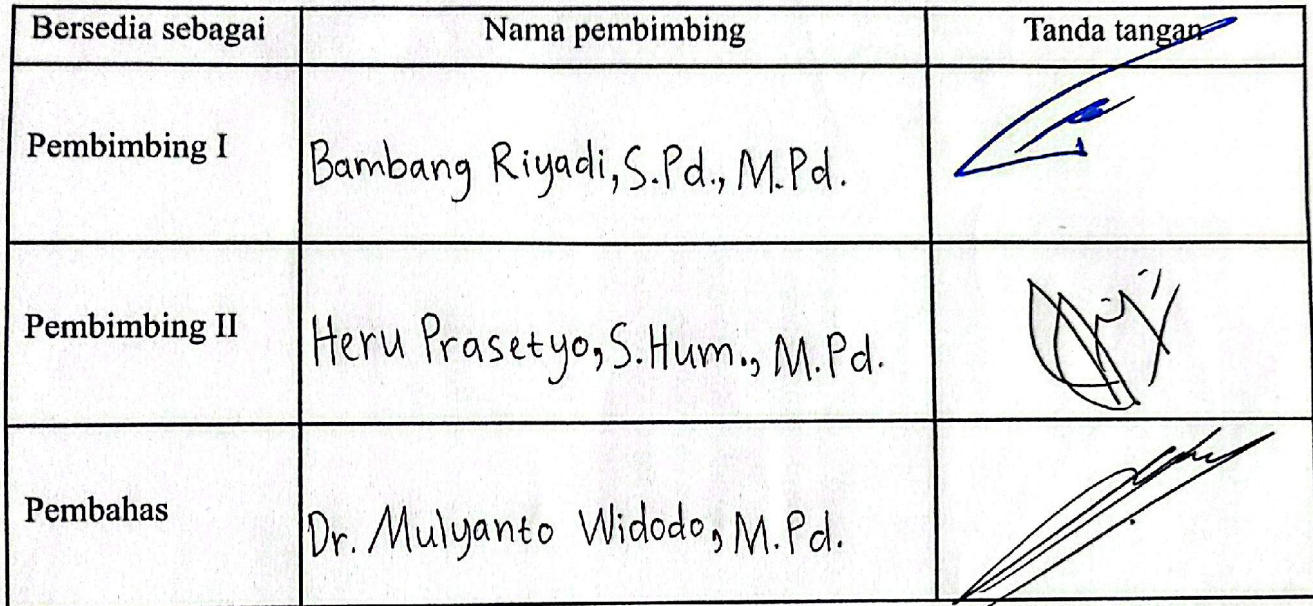 Bersedia sebagai Nama pembimbing Tanda tangan
Pembimbing I Bambang Riyadi, S.Pd., M.Pd.
Pembimbing II Heru Prasetyo, S.Hum., M.Pd.
Pembahas Dr. Mulyanto Widodo, M.Pd.